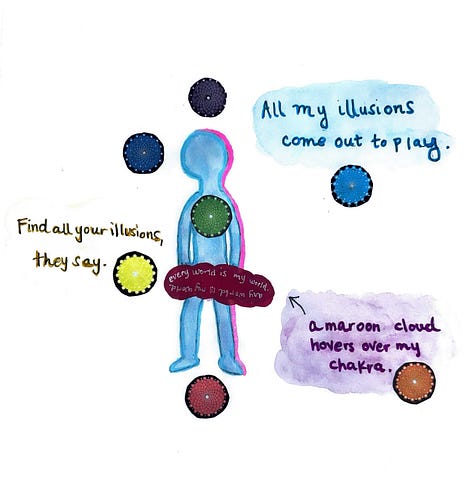 All my illusions
come out to play.
Find all your illusions,
they say.
every world is my world.
any world is my world.
a maroon cloud
hovers over my
chakra.